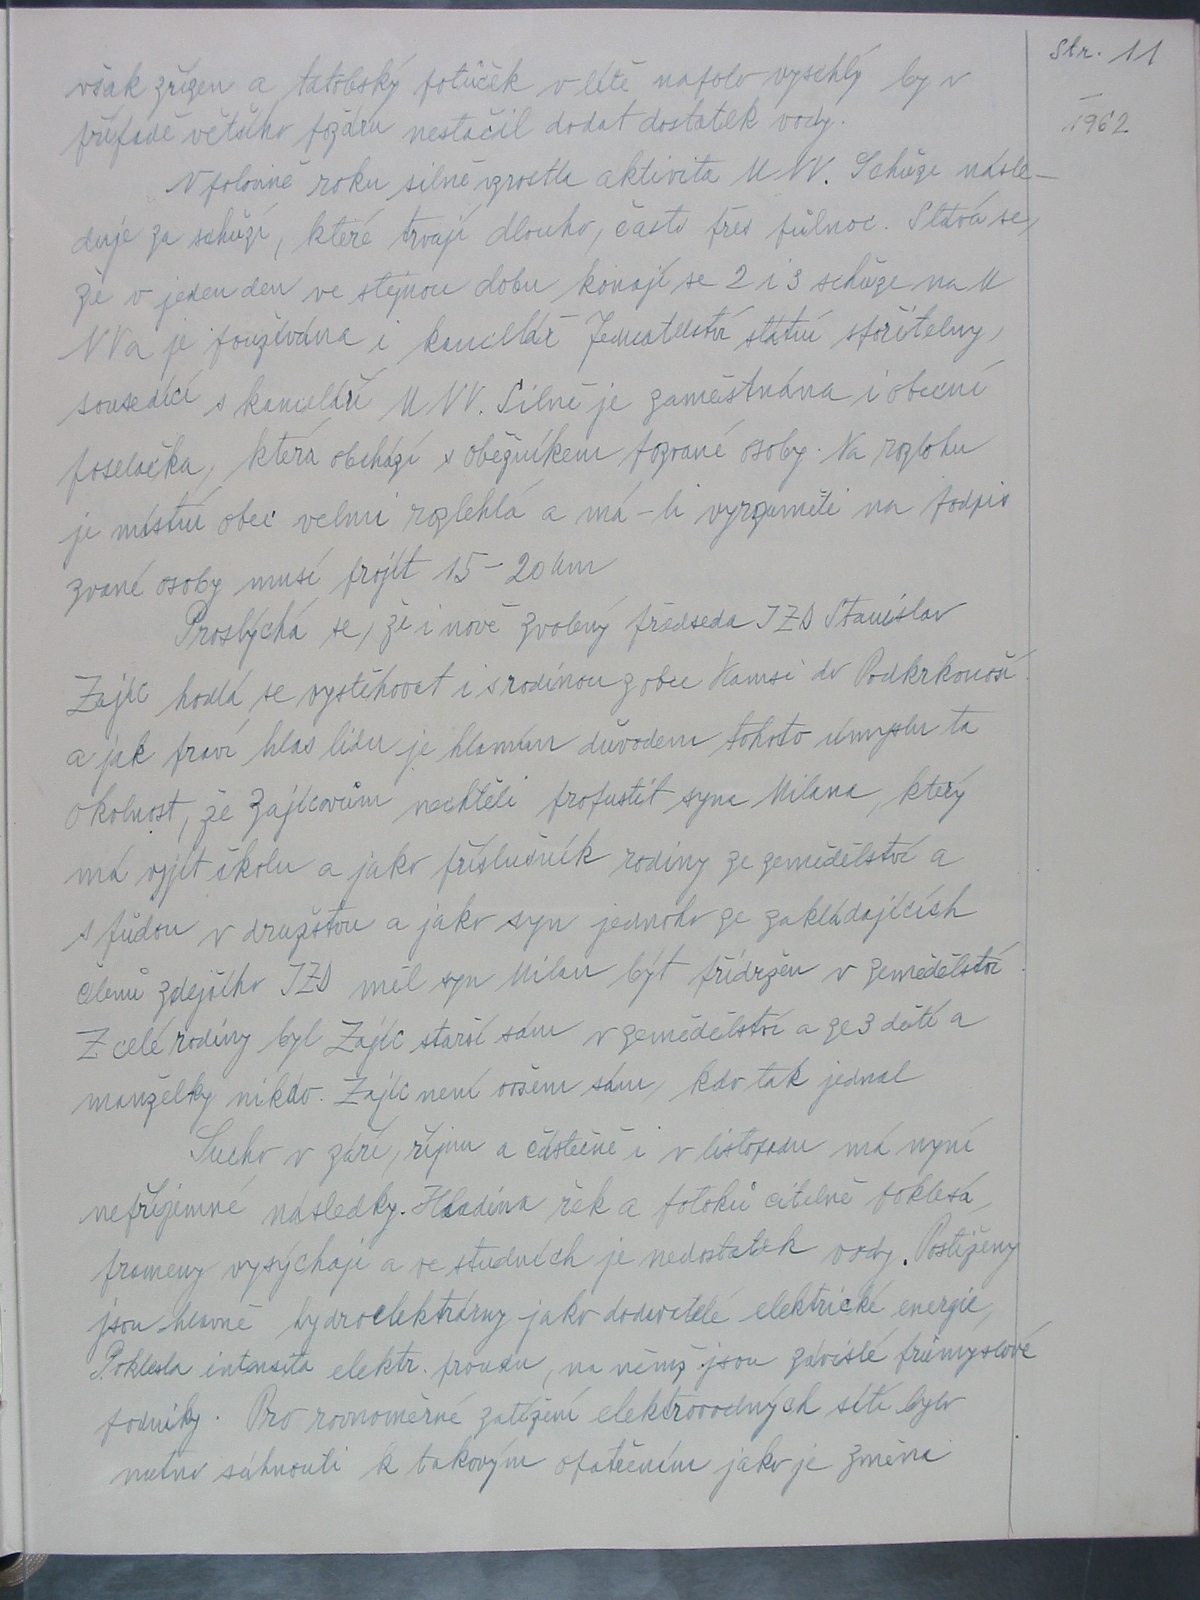 str. 11
1962
však zřízen a tatobský potůček v létě napolo vyschlý by v
případě většího požáru nestačil dodat dostatek vody.
V polovině roku silně vzrostla aktivita M NV. Schůze násle-
duje za schůzí, které trvají dlouho, často přes půlnoc. Stává se,
že v jeden den ve stejnou dobu konají se 2 i 3 schůze na M
NVa je používána i kancelář Jednatelství státní spořitelny,
sousedící s kanceláří M NV. Silně je zaměstnána i obecní
poselačka, která obchází s oběžníkem pozvané osoby. Na rozlohu
je místní obec velmi rozlehlá a má-li vyrozuměti na podpis
zvané osoby musí projít 15-20 km
Proslýchá se, že i nově zvolený předseda JZD Stanislav
Zajíc hodlá se vystěhovat i s rodinou z obce kamsi do Podkrkonoší
a jak praví hlas lidu je hlavním důvodem tohoto úmyslu ta
okolnost, že Zajícovům nechtěli propustit syna Milana, který
má vyjít školu a jako příslušník rodiny ze zemědělství a
s půdou v družstvu a jako syn jednoho ze zakládajících
členů zdejšího JZD měl syn Milan být přidržen v zemědělství
Z celé rodiny byl Zajíc starší sám v zemědělství a ze 3 dětí a
manželky nikdo. Zajíc není ovšem sám, kdo tak jednal
Sucho v září, říjnu a částečně i v listopadu má nyní
nepříjemné následky. Hladina řek a potoků citelně poklesá,
prameny vysýchají a ve studních je nedostatek vody. Postiženy
jsou hlavně hydroelektrárny jako dodavatelé elektrické energie,
Poklesla intensita elektr. proudu, na němž jsou závislé průmyslové
podniky. Pro rovnoměrné zatížení elektrovodných sítí bylo
nutno sáhnouti k takovým opatřením jako je změna